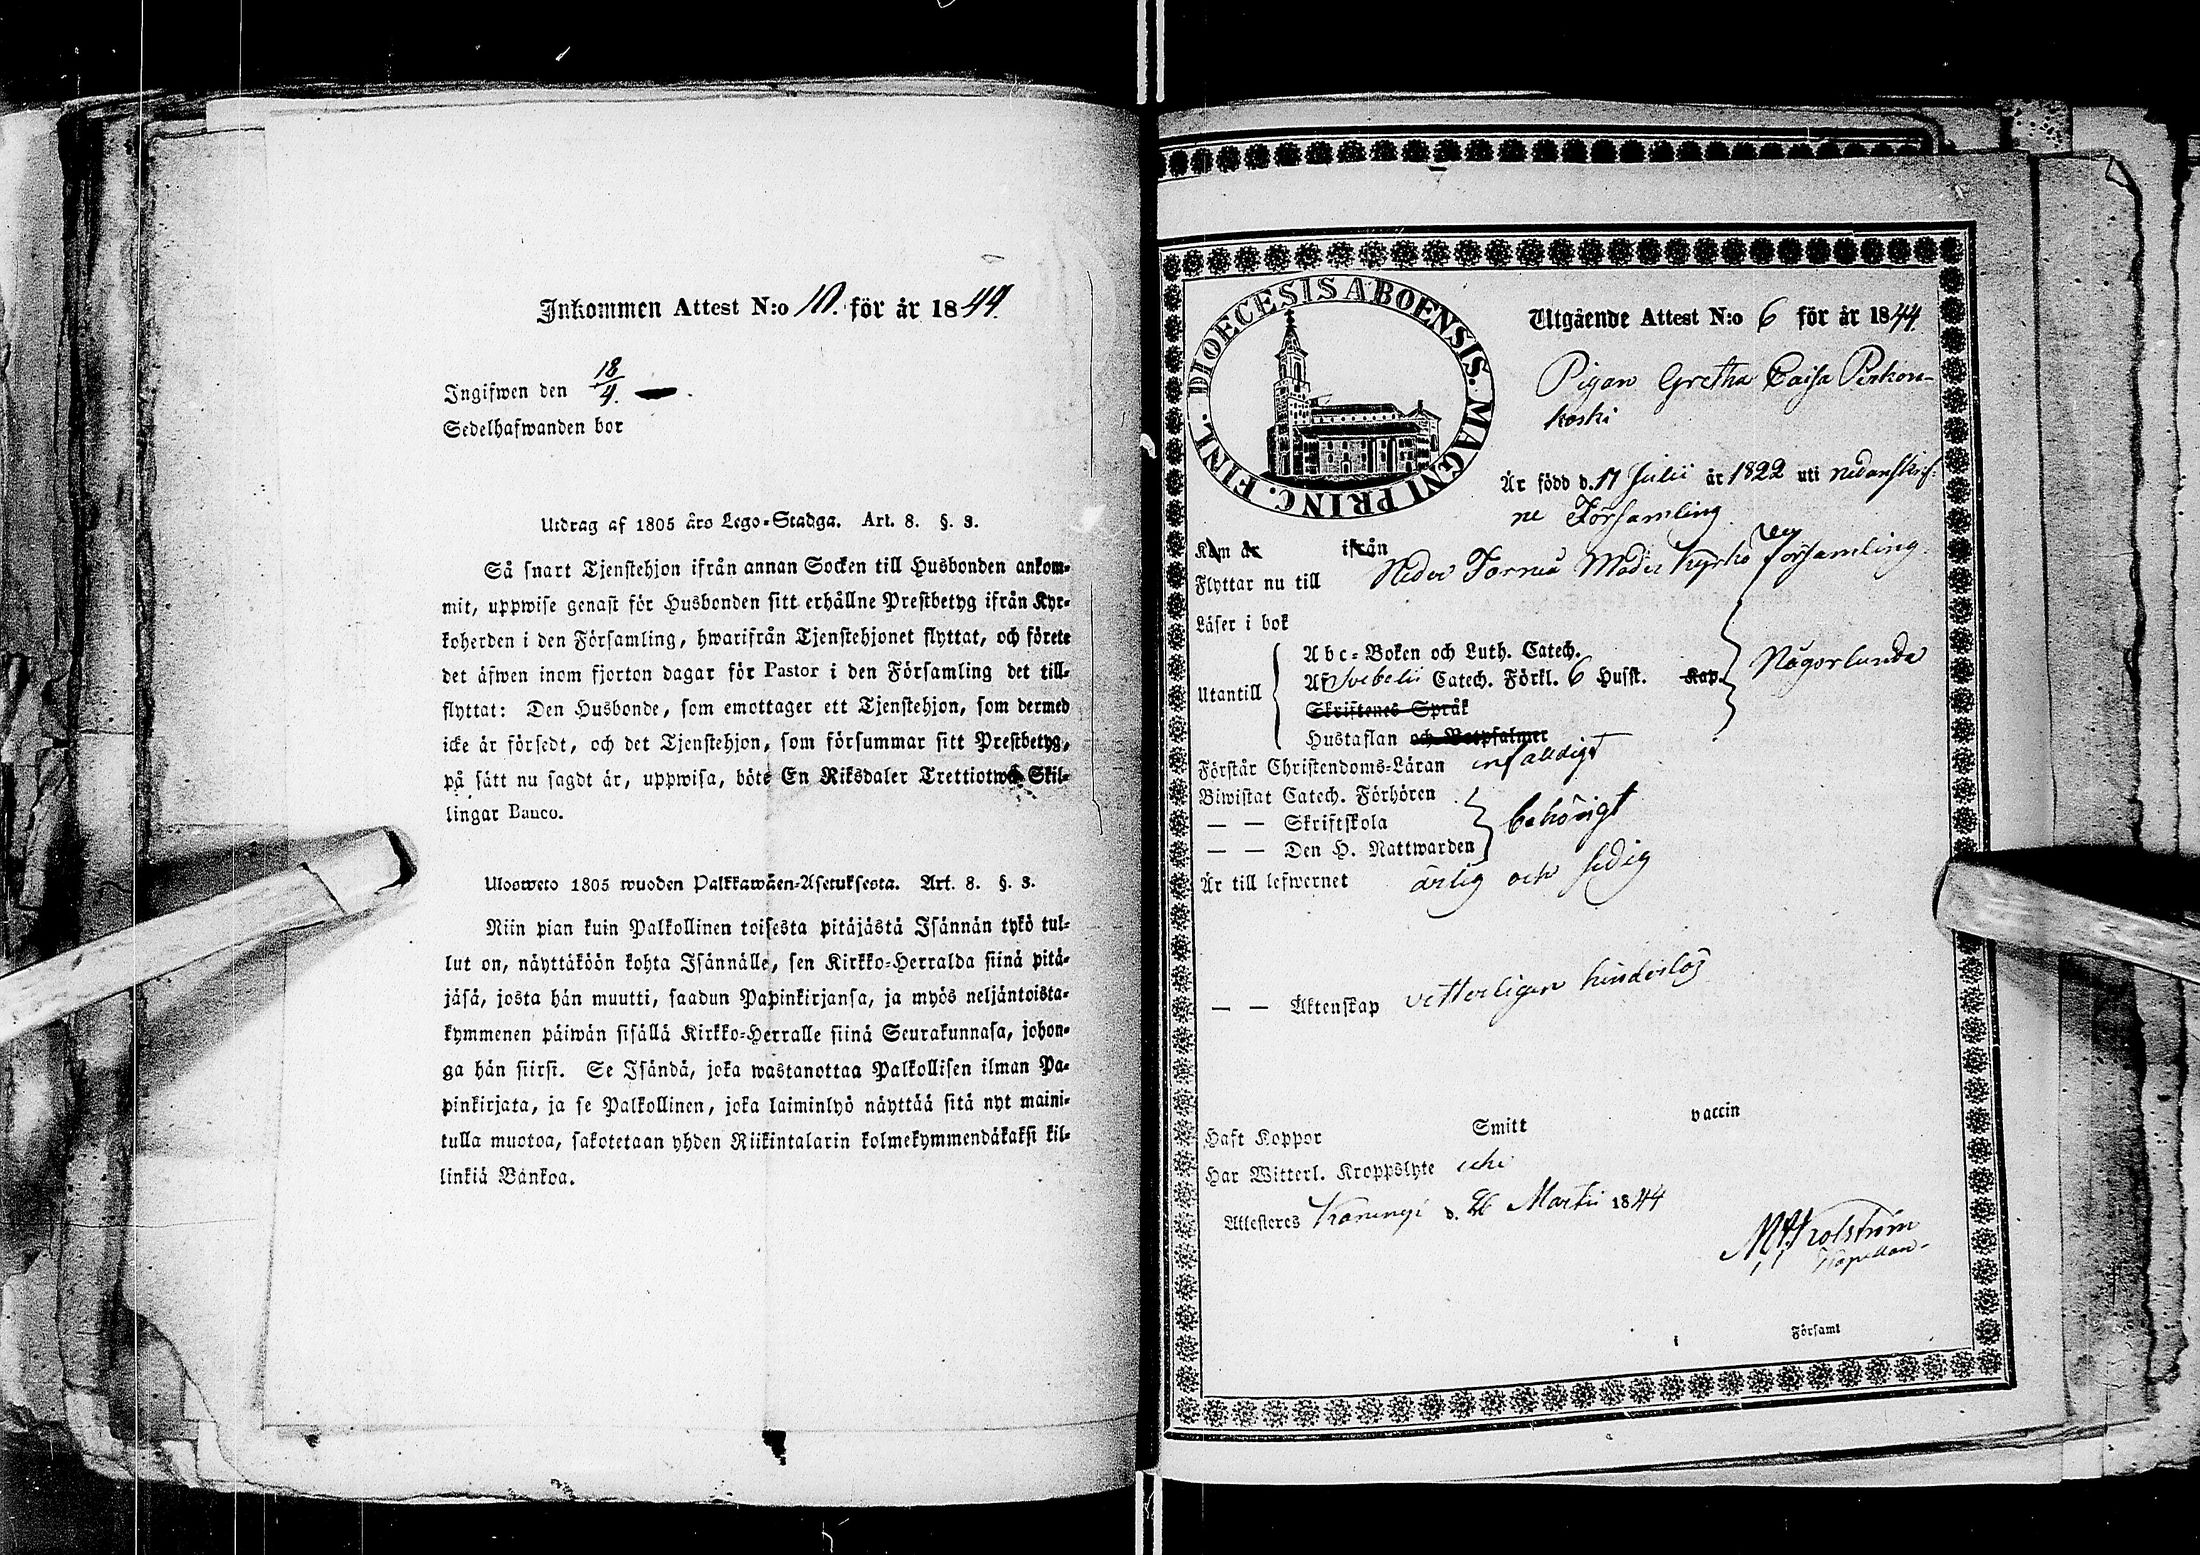 Inkommen Attest N:o 10. för år 1844.
Ingifwen den 18/4.
Sedelhafwanden bor
Utdrag af 1805 års Lego-Stadga. Art. 8. §. 3.
Så snart Tjenstehjon ifrån annan Socken till Husbonden ankom-
mit, uppwise genast för Husbonden sitt erhållne Prestbetyg ifrån Kyr-
koherden i den Församling, hwarifrån Tjenstehjonet flyttat, och förete
det äfwen inom fjorton dagar för Pastor i den Församling det till-
flyttat: Den Husbonde, som emottager ett Tjenstehjon, som dermed
icke är försedt, och det Tjenstehjon, som försummar sitt Prestbetyg,
på sätt nu sagdt är, uppwisa, böte En Riksdaler Trettiotwå Skil-
lingar Banco.
Ulosweto 1805 wuoden Palkkawäen-Asetuksesta. Art. 8. §. 3.
Niin pian kuin Palkollinen toisesta pitäjästä Isännän tykö tul-
lut on, näyttäköön kohta Isännälle, sen Kirkko-Herralda siinä pitä-
jäsä, josta hän muutti, saadun Papinkirjansa, ja myös neljäntoista-
kymmenen päiwän sisällä Kirkko-Herralle siinä Seurakunnasa, johon-
ga hän siirsi. Se Isändä, joka wastanottaa Palkollisen ilman Pa-
pinkirjata, ja se Palkollinen, joka laiminlyö näyttää sitä nyt maini-
tulla muotoa, sakotetaan yhden Riikintalarin kolmekymmendäkaksi kil-
linkiä Bankoa.
DIOECESIS ABOENSIS. MAGNI PRINC. FINL.
Utgående Attest N:o 6 för år 1844
Pigan Gretha Caisa Pirkon-
koski
Är född d. 17 Julii år 1822 uti nedanskrif-
ne Församling
Kom år ifrån
Flyttar nu till Neder Torneå Moder Kyrko Församling.
Läser i bok
Utantill
Abc-Boken och Luth. Catech.
Af Svebelii Catech. Förkl. 6 Husst. Kap. Någorlunda
Skriftenes Språk
Hustaflan och Botpsalmer
Förstår Christendoms-Läran enfaldigt
Biwistat Catech. Förhören
— — Skriftskola behörigt
— — Den H. Nattwarden
Är till lefwernet ärlig och sedig
— — Äktenskap vetterligen hinderlös
Haft Koppor Smitt vaccin
Har Witterl. Kroppslyte icke
Attesteres Karungi d. 26 Martii 1844
Kolström
Kapellan
Församl